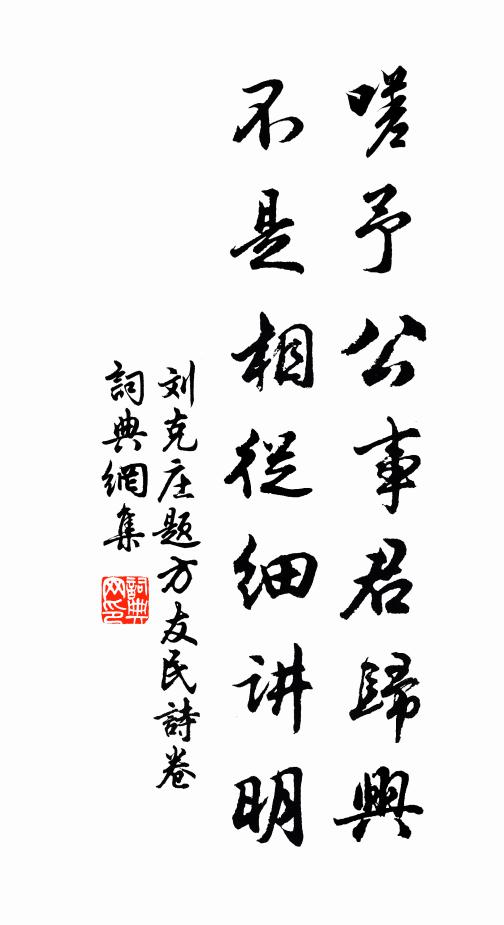 嗟予公事君歸興
不是相從细讲明
刘克庄题方友民詩卷
詞典網集
詞典
网印